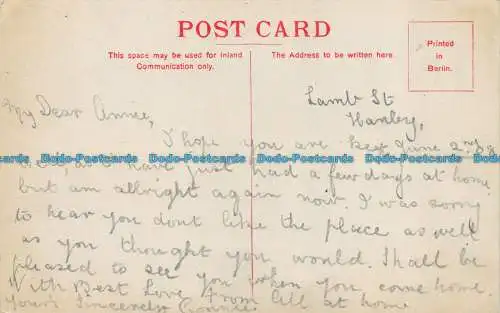 POST CARD
This space may be used for Inland
Communication only.
The Address to be written here.
Printed
in
Berlin.
Lamb St
Hanley,
June 2nd 08
My Dear Annie,
I hope you are
well, as I have just had a few days at home
but am allright again now. I was sorry
to hear you dont like the place as well
as you thought you would. Shall be
pleased to see you when you come home.
With Best Love from all at home
Yours Sincerely
Dodo-Postcards Dodo-Postcards Dodo-Postcards Dodo-Postcards Dodo-Postcards Dodo-Postcards